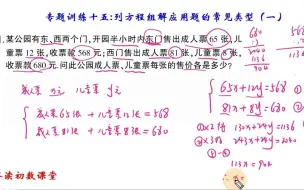 专题训练十五:列方程组解应用题的常见类型(一)
某公园有东、西两个门,开园半小时内东门售出成人票 65 张,儿
童票 12 张,收票款 568 元;西门售出成人票 81 张,儿童票 8 张,
收票款 680 元.问此公园成人票、儿童票每张的售价各是多少?
成人票 x元 儿童票 y元
成人票65张 + 儿童票12张 = 568
成人票81张 + 儿童票8张 = 680
65x+12y=568
81x+8y=680
①×2得 130x+24y=1136
②×3得 243x+24y=2040
113x=904
读初数课堂